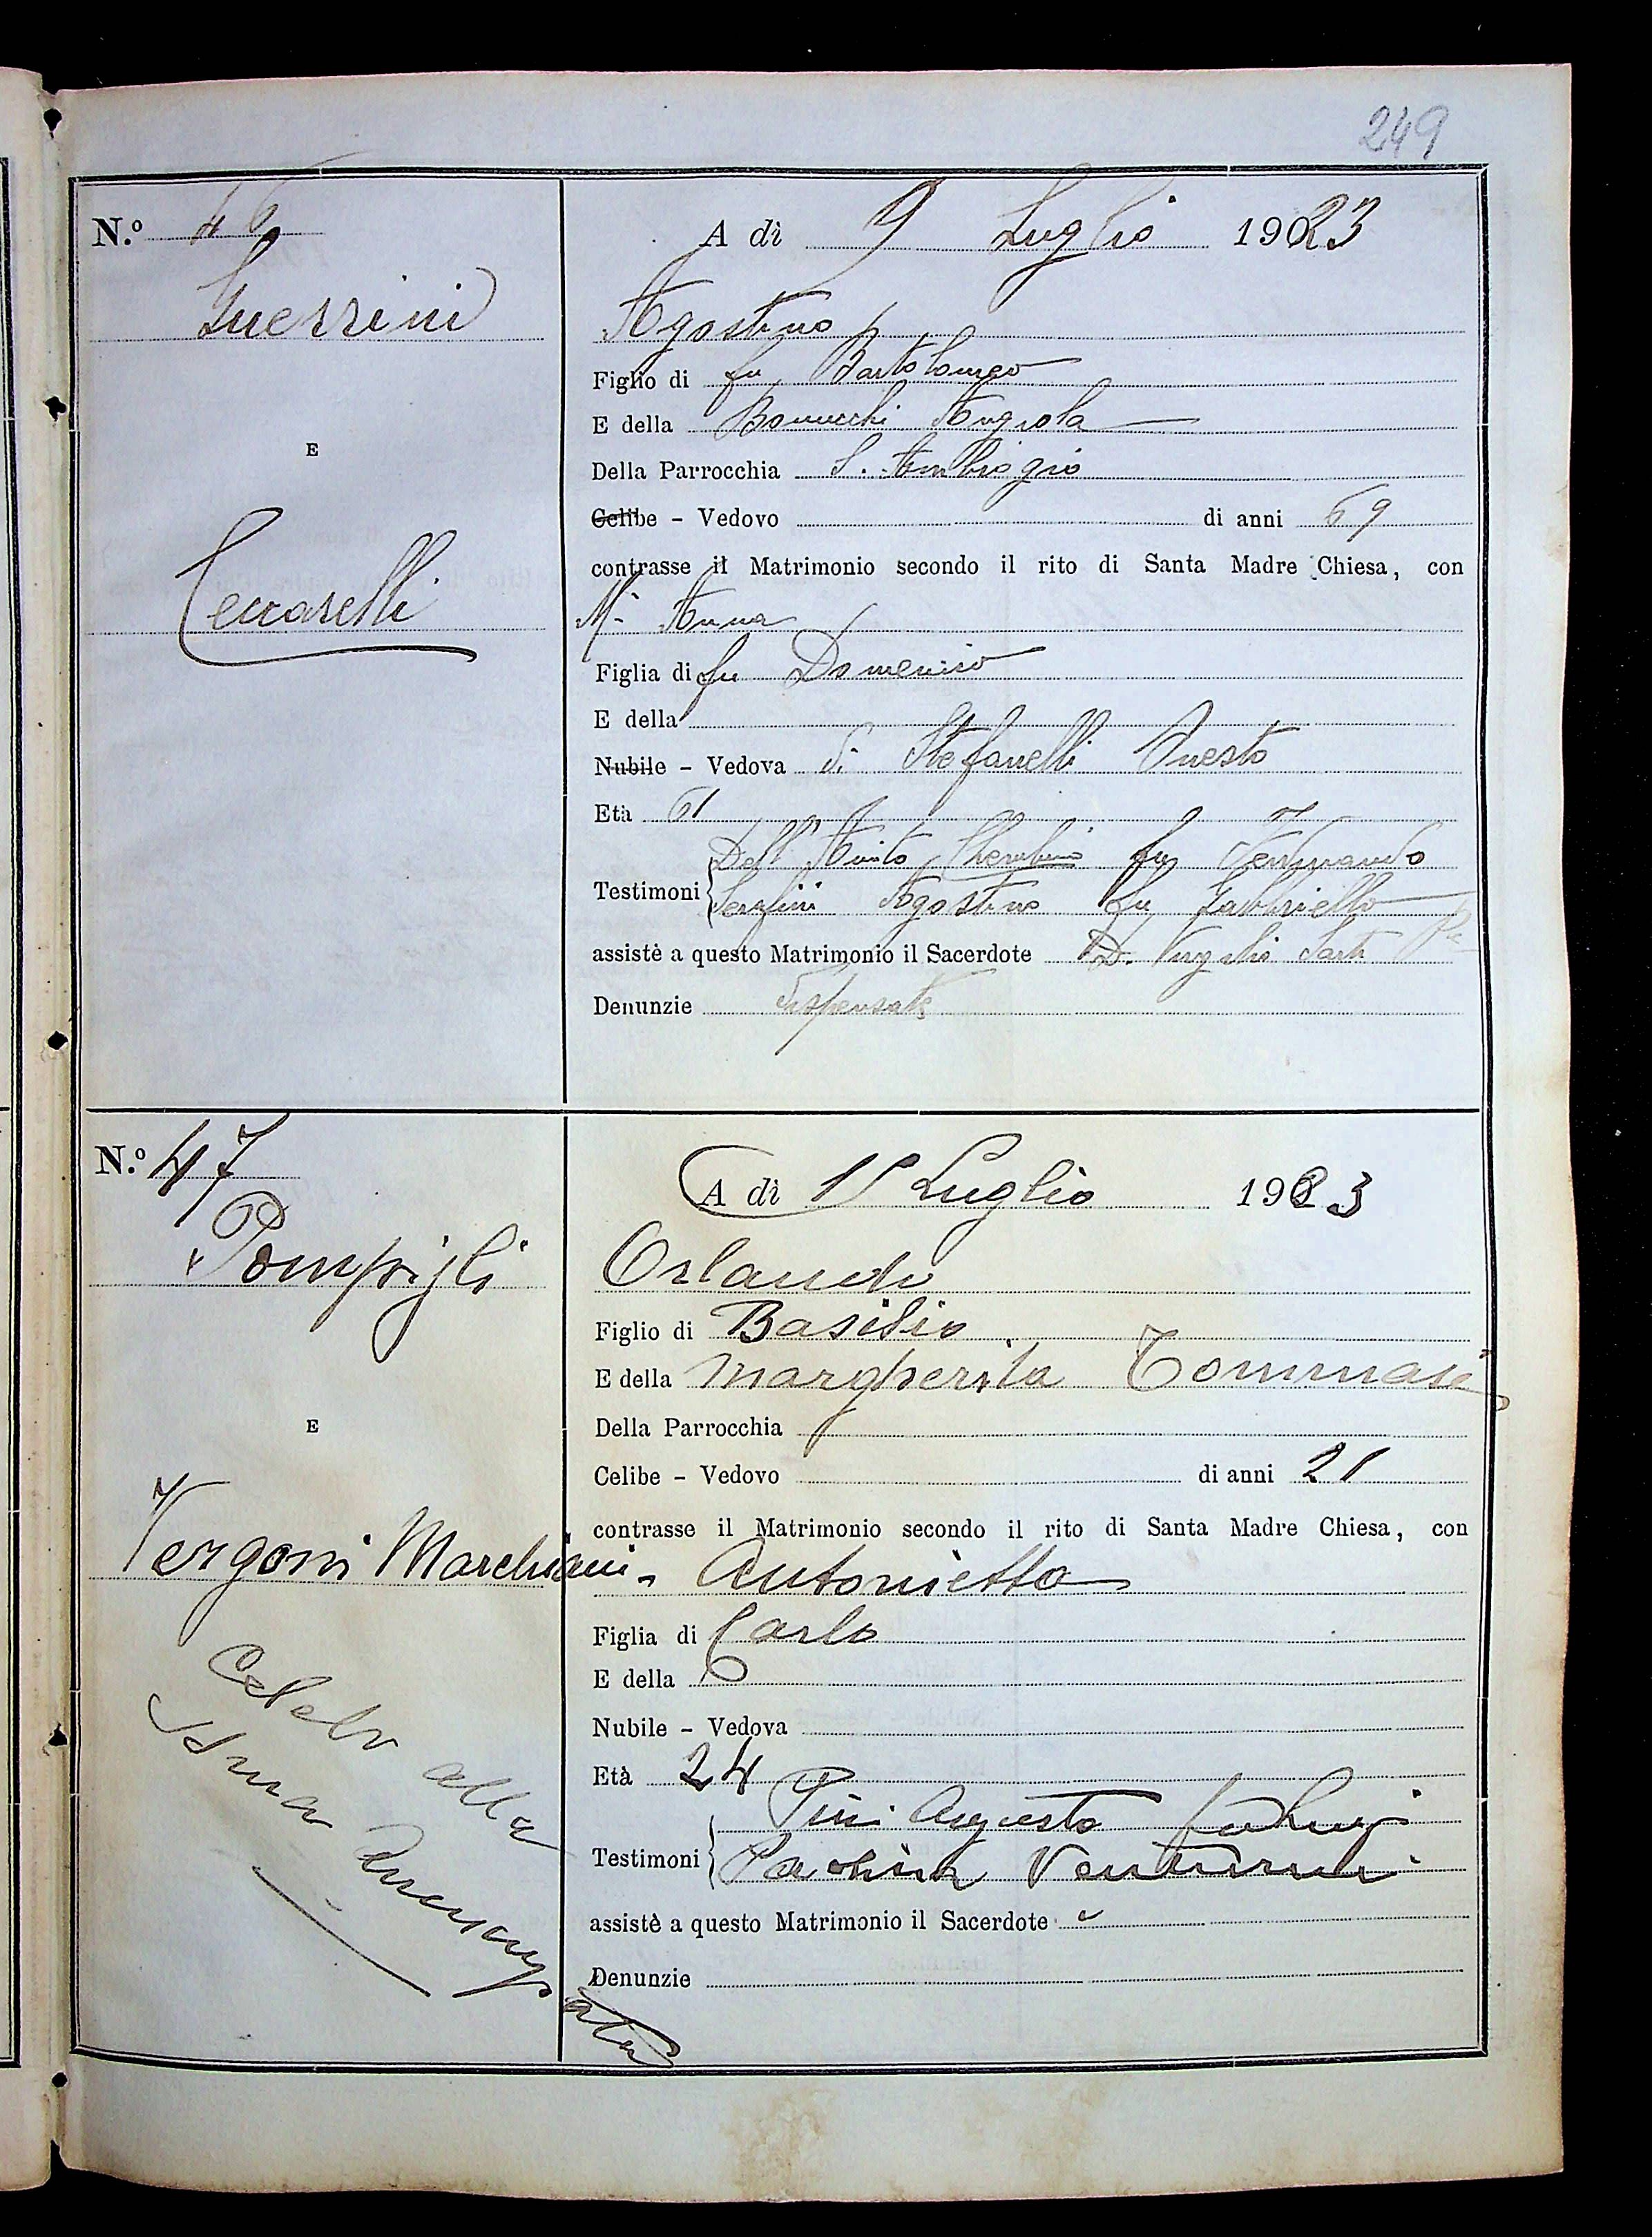 249
N.º 46
A dì 9 Luglio 1923
Guerrini
Agostino
Figlio di fu Bartolomeo
E della Bonucchi Angiola
E
Della Parrocchia S. Ambrogio
Celibe - Vedovo di anni 69
contrasse il Matrimonio secondo il rito di Santa Madre Chiesa, con
Ceccarelli
Mª Anna
Figlia di fu Domenico
E della
Nubile - Vedova di Stefanelli Onesto
Età 61
Dell' Cherubino fu Ferdinando
Testimoni Serafini Agostino fu Gabbriello
assistè a questo Matrimonio il Sacerdote D. Virgilio Sarti
Denunzie Dispensate
N.º 47
A dì 15 Luglio 1923
Pompigli
Orlando
Figlio di Basilio
E della Margherita Tommasi
E
Della Parrocchia
Celibe - Vedovo di anni 21
contrasse il Matrimonio secondo il rito di Santa Madre Chiesa, con
Vergoni Marchiani - Antonietta
Figlia di Carlo
E della
Nubile - Vedova
Età 24
Pini Augusto fu Luigi
Testimoni Venturini
assistè a questo Matrimonio il Sacerdote
Denunzie
alla